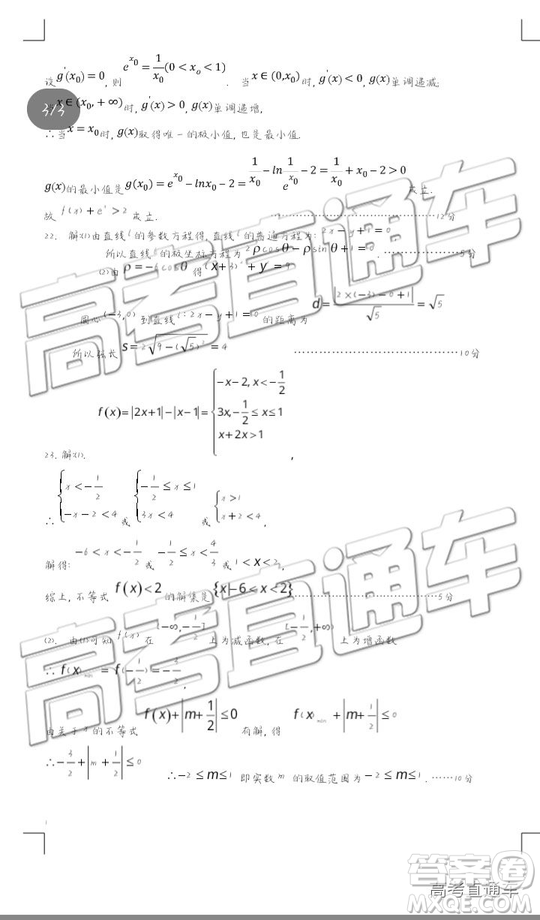 设 g'(x₀)=0, 则 e^{x₀}=1/x₀(0<x₀<1). 当 x∈(0,x₀) 时, g'(x)<0, g(x) 单调递减;
3/3
x∈(x₀,+∞) 时, g'(x)>0, g(x) 单调递增,
∴当 x=x₀ 时, g(x) 取得唯一的极小值, 也是最小值.
g(x) 的最小值是 g(x₀)=e^{x₀}-lnx₀-2=1/x₀-ln1/e^{x₀}-2=1/x₀+x₀-2>0 成立.
故 f(x)+e^x>2 成立. 12分
22. 解:(1)由直线l的参数方程得,直线l的普通方程为:2x-y+1=0
所以直线l的极坐标方程为 2ρcosθ-ρsinθ+1=0. 5分
(2)由 ρ=-6cosθ 得 (x+3)²+y²=9
圆心 (-3,0) 到直线 l:2x-y+1=0 的距离为 d=|2×(-3)-0+1|/√5=√5
所以弦长 s=2√9-(√5)²=4 10分
f(x)=|2x+1|-|x-1|={-x-2, x<-1/2
3x,-1/2≤x≤1
x+2x>1
23. 解:(1). ,
∴ {x<-1/2 -x-2<4 或 {-1/2≤x≤1 3x<4 或 {x>1 x+2<4
解得: -6<x<-1/2 或 -1/2≤x≤1 或 1<x<2,
综上,不等式 f(x)<2 的解集是 {x|-6<x<2} 5分
(2). 由(1)可知 f(x) 在 (-∞,-1/2] 上为减函数, 在 [-1/2,+∞) 上为增函数
∴ f(x)min=f(-1/2)=-3/2,
由关于x的不等式 f(x)+|m+1/2|≤0 有解, 得 f(x)min+|m+1/2|≤0
∴-3/2+|m+1/2|≤0 ∴-2≤m≤1 即实数m的取值范围为 -2≤m≤1. ……10分
高考直通车
高考直通车
答案圈
高考直通车
MXQE.COM